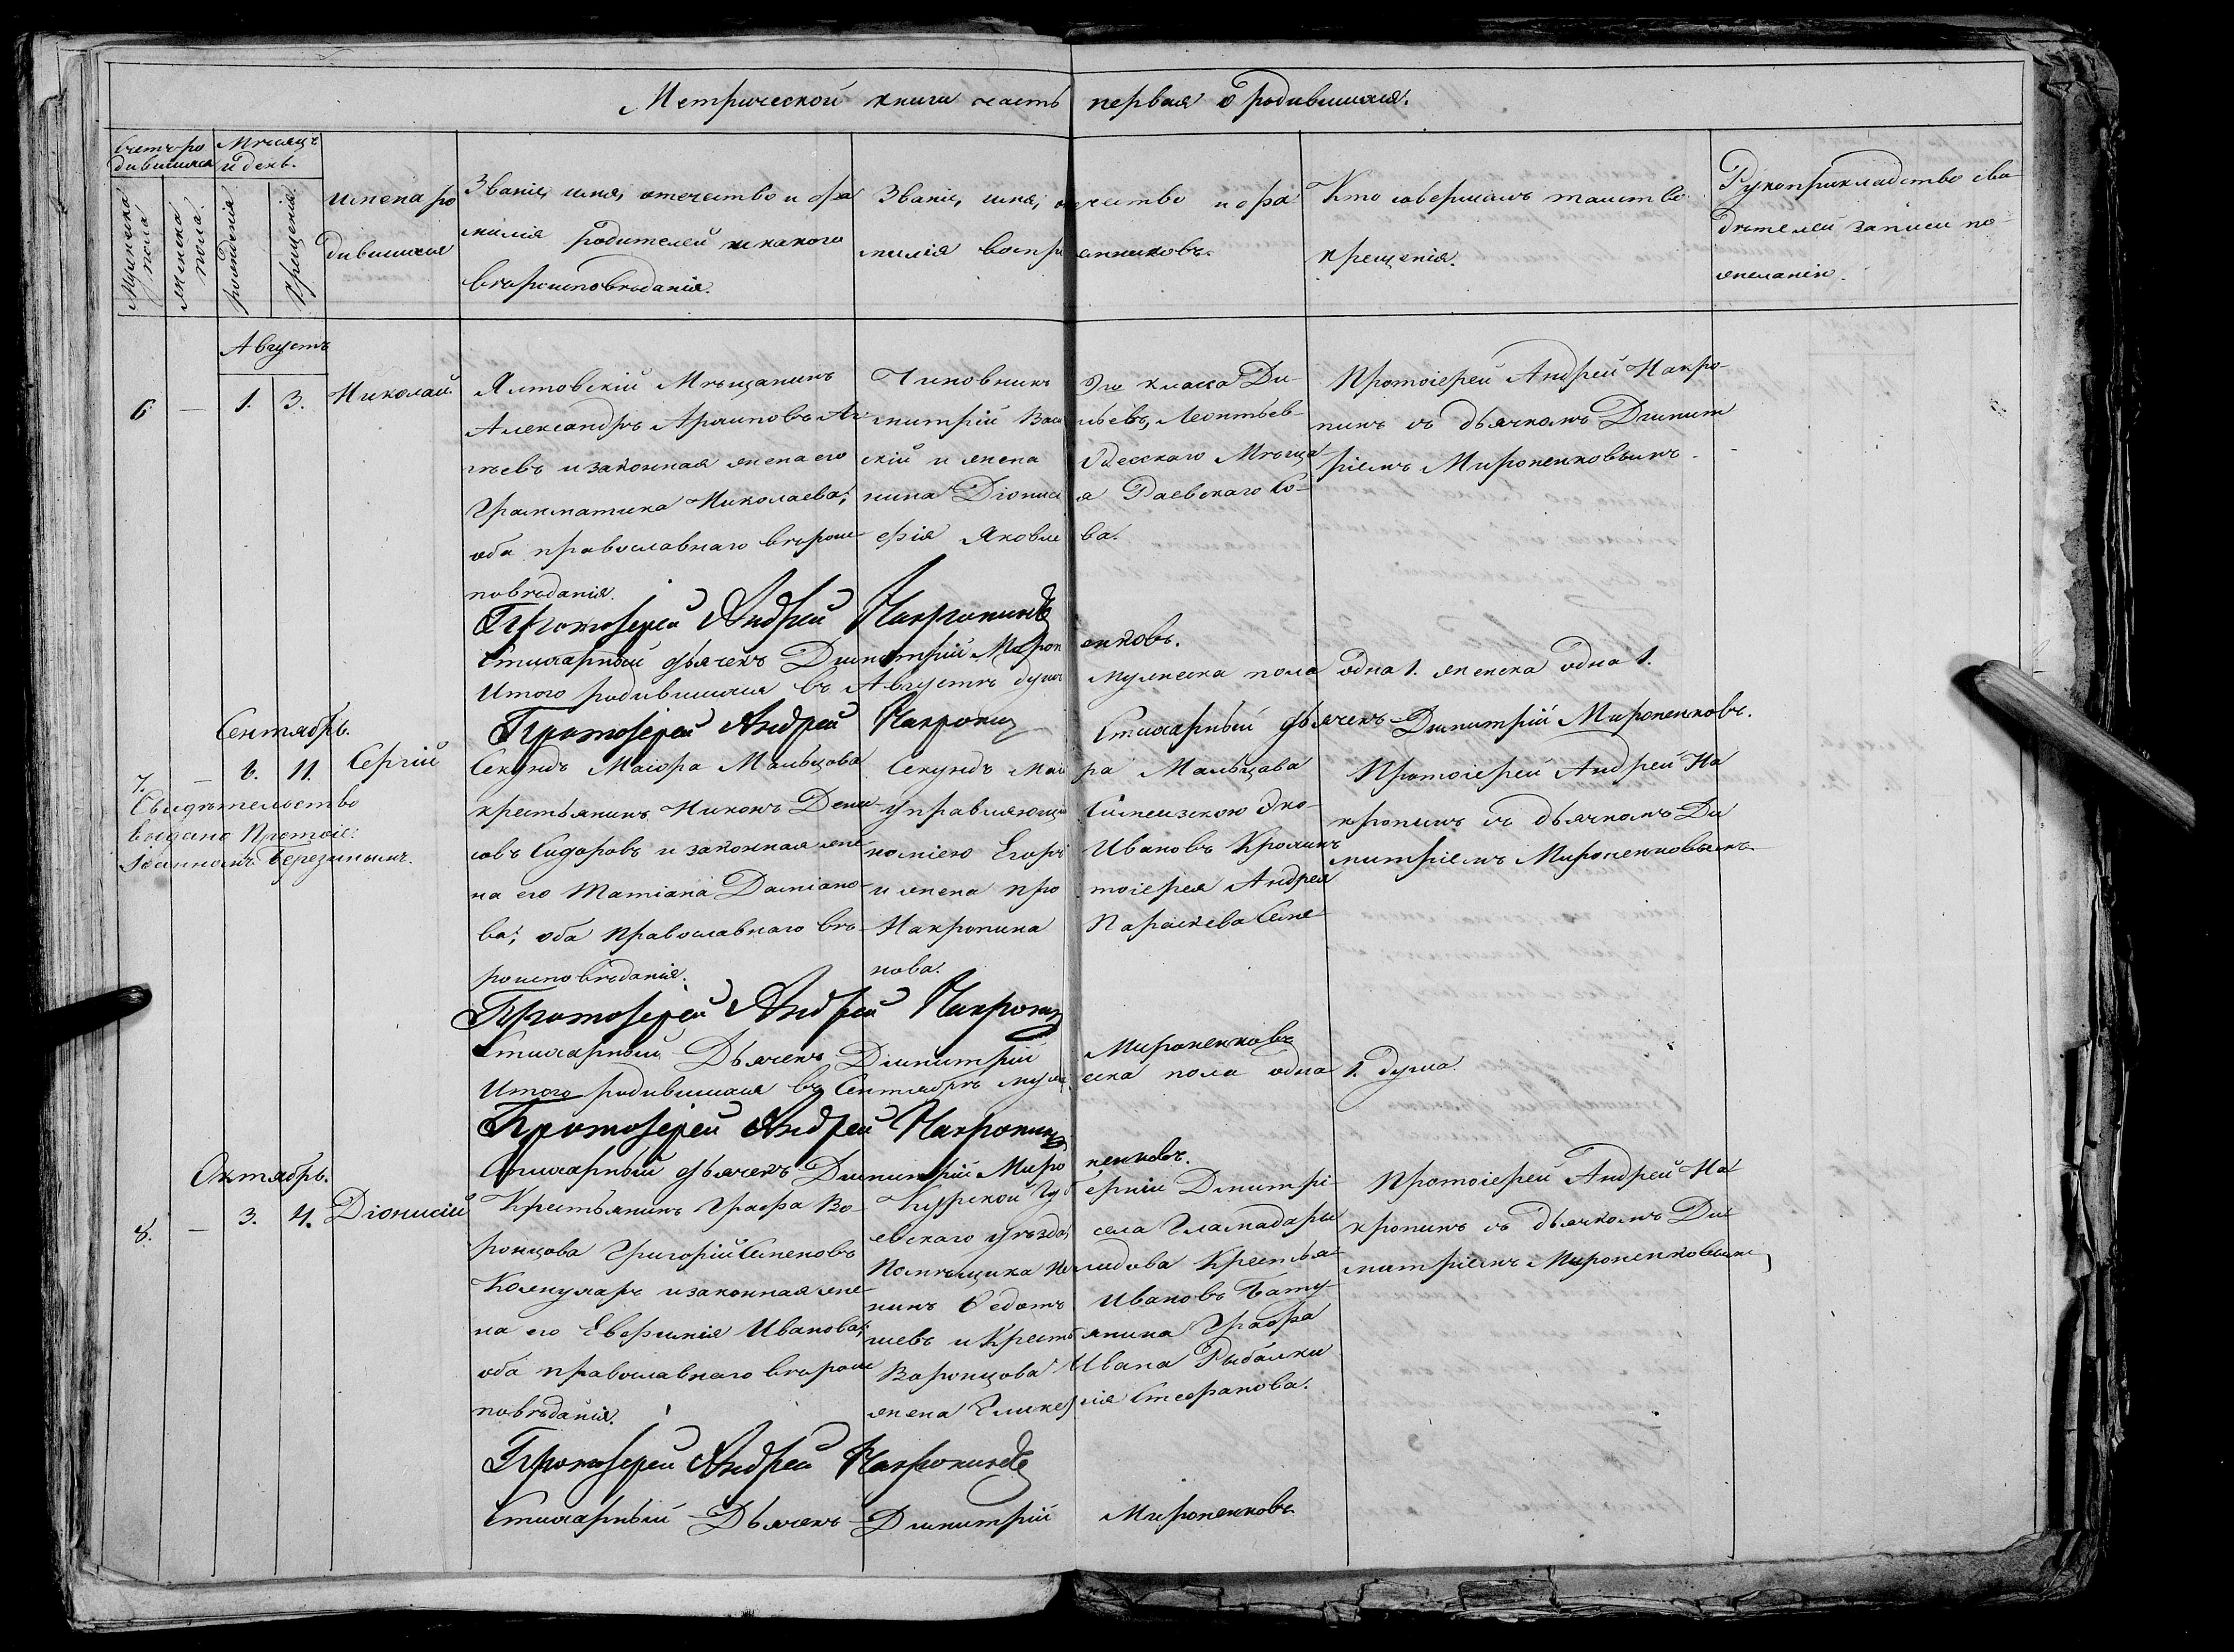 Метрической книги часть первая о родившихся.
Счетъ ро Мѣсяцъ
дившихся и день.
Мужеска пола
женска пола.
рожденія
Крещенія
имена ро
дившихся
Званіе, имя, отечество и фа
милія родителей и какого
вѣроисповѣданія.
Званіе, имя, отечество и фа
милія воспріемниковъ.
Кто совершалъ таинство
крещенія.
Рукоприкладство сви
дѣтелей записи по
желанію.
Августъ
6. — 1. 3. Николай.
Ялтовскій Мѣщанинъ
Александръ Архиповъ
и законная жена его
Николаева;
оба православнаго вѣроис
повѣданія.
Чиновникъ 9го класса Ди
митрій Васильевъ, Леонтьев
скій и жена Одесскаго Мѣща
нина Діонисія Раевскаго Со
фія Яковлева.
Протоіерей Андрей Накро
пинъ съ дьячкомъ Димит
ріемъ Мироненковымъ.
Протоіерей Андрей Накропинъ
Стихарный дьячекъ Димитрій Мироненковъ.
Итого родившихся въ Августѣ душъ мужеска пола одна 1. женска одна 1.
Протоіерей Андрей Накропинъ Стихарный дьячекъ Димитрій Мироненковъ.
Сентябрь.
7. — 6. 11. Сергій
Свидѣтельство
выдано Протоіе:
Іоанномъ Березинымъ.
Секундъ Маіора Мальцова
крестьянинъ Никонъ Дени
совъ Сидоровъ и законная же
на его Татіана Даміано
ва; оба православнаго вѣ
роисповѣданія.
Секундъ Маіора Мальцова
Управляющій Симеизскою Эко
номіею Егоръ Ивановъ Кроминъ
и жена протоіерея Андрея
Накропина Параскева Симе
нова.
Протоіерей Андрей На
кропинъ съ дьячкомъ Ди
митріемъ Мироненковымъ
Протоіерей Андрей Накропинъ
Стихарный Дьячекъ Димитрій Мироненковъ
Итого родившихся въ Сентябрѣ мужеска пола одна 1. душа.
Протоіерей Андрей Накропинъ
Стихарный дьячекъ Димитрій Мироненковъ.
Октябрь.
8. — 3. 4. Діонисій
Крестьянинъ Графа Во
ронцова Григорій Семеновъ
и законная же
на его Евфимія Иванова;
оба православнаго вѣроис
повѣданія.
Курской Губерніи Дмитрі
евскаго уѣзда, села
Помѣщика Крестья
нинъ Федотъ Ивановъ Бату
шевъ и Крестьянина Графа
Воронцова Ивана Рыбалки
жена Гликерія Стефанова.
Протоіерей Андрей На
кропинъ съ дьячкомъ Ди
митріемъ Мироненковымъ
Протоіерей Андрей Накропинъ
Стихарный Дьячекъ Димитрій Мироненковъ